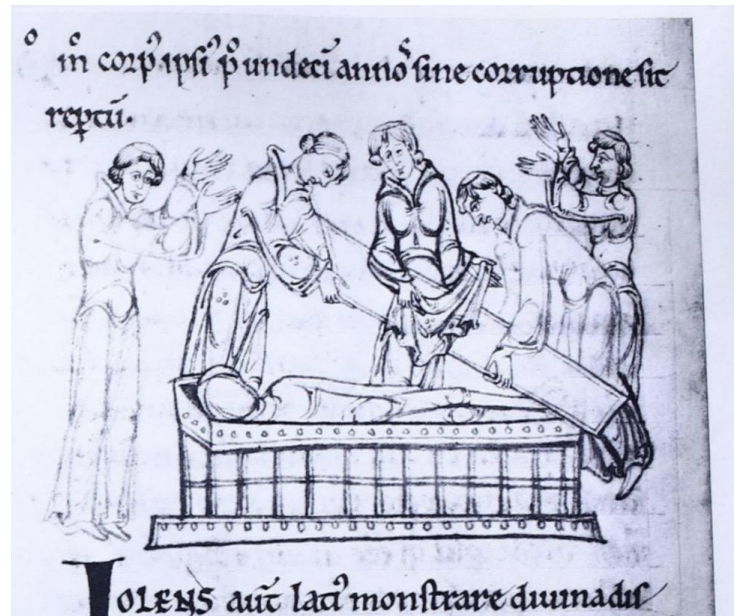 Qͦm̊ corpˀ ipsiˀ p̊ undeci annoꝝ sine corruptione sit
rep̲tū.
VOLENS aut̄ latiˀ monstrare diuina dis